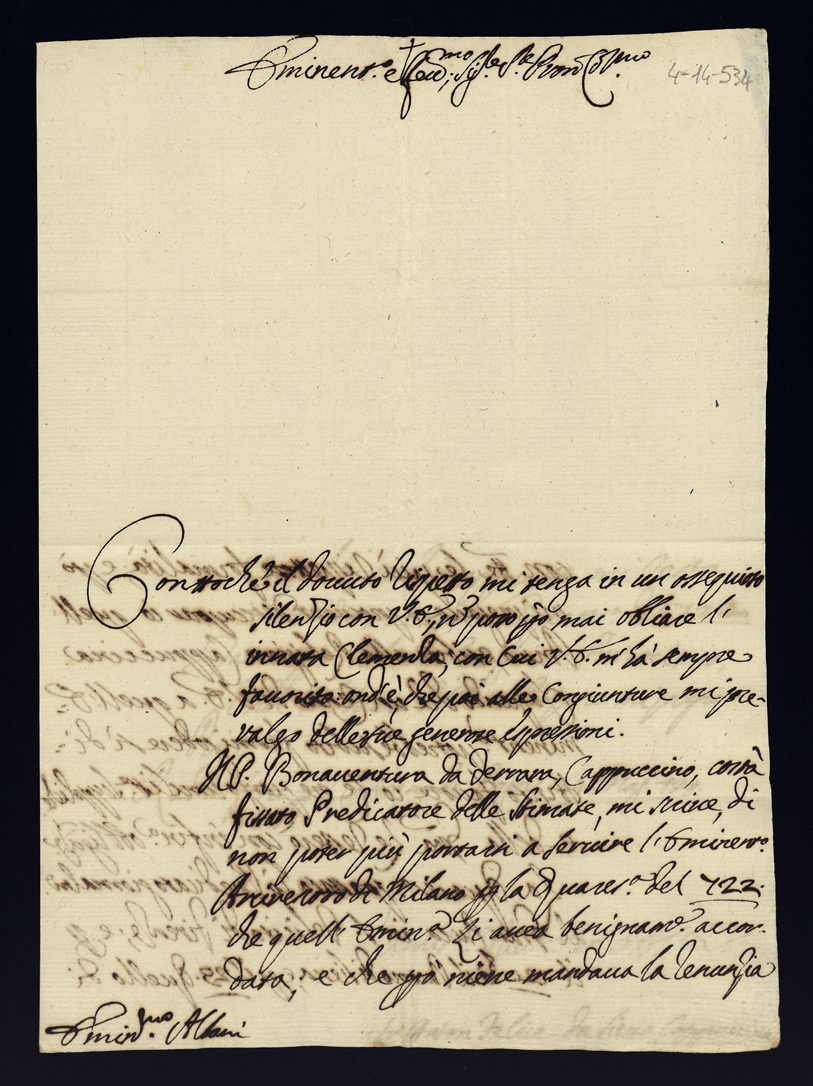 4-14-534
Eminent.º e Rev.mo Sig.re Sig.re Pron Col.mo
Contoché il dovuto rispetto mi tenga in un ossequioso
silenzio con V.E., nō posso ꝑò mai obliare l'
innata Clemenza, con cui V.E. m'hà sempre
favorito: ond'è, che poi alle Congiunture mi pre-
valgo delle sue generose espressioni.
Il P. Bonaventura da Ferrara, Cappuccino, costà
fissato Predicatore delle Stimate, mi scrive, di
non poter più portarsi a servire l'Eminent.º
Arcivescovo di Milano ꝑ la Quares.ª del 722.
che quell'Emin.º li avea benignam.e accor-
data; e che ꝑò niene mandava la renunzia
Emin.mo Albani